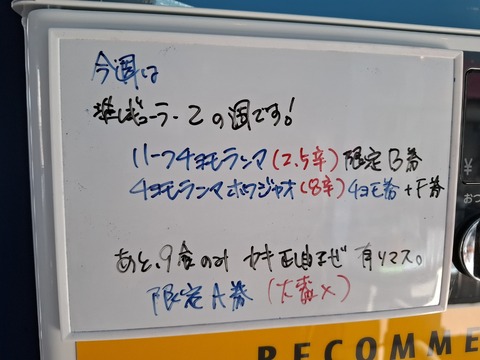 今週は
推しギョーラー2の週です!
ハーフチョモランマ(2.5辛)限定B券
チョモランマホワジャオ(8辛)チョモ券+F券
あと、9食のみ 油正油まぜ 有リマス。
限定A券(大盛×)
¥
おつ
RECOMME